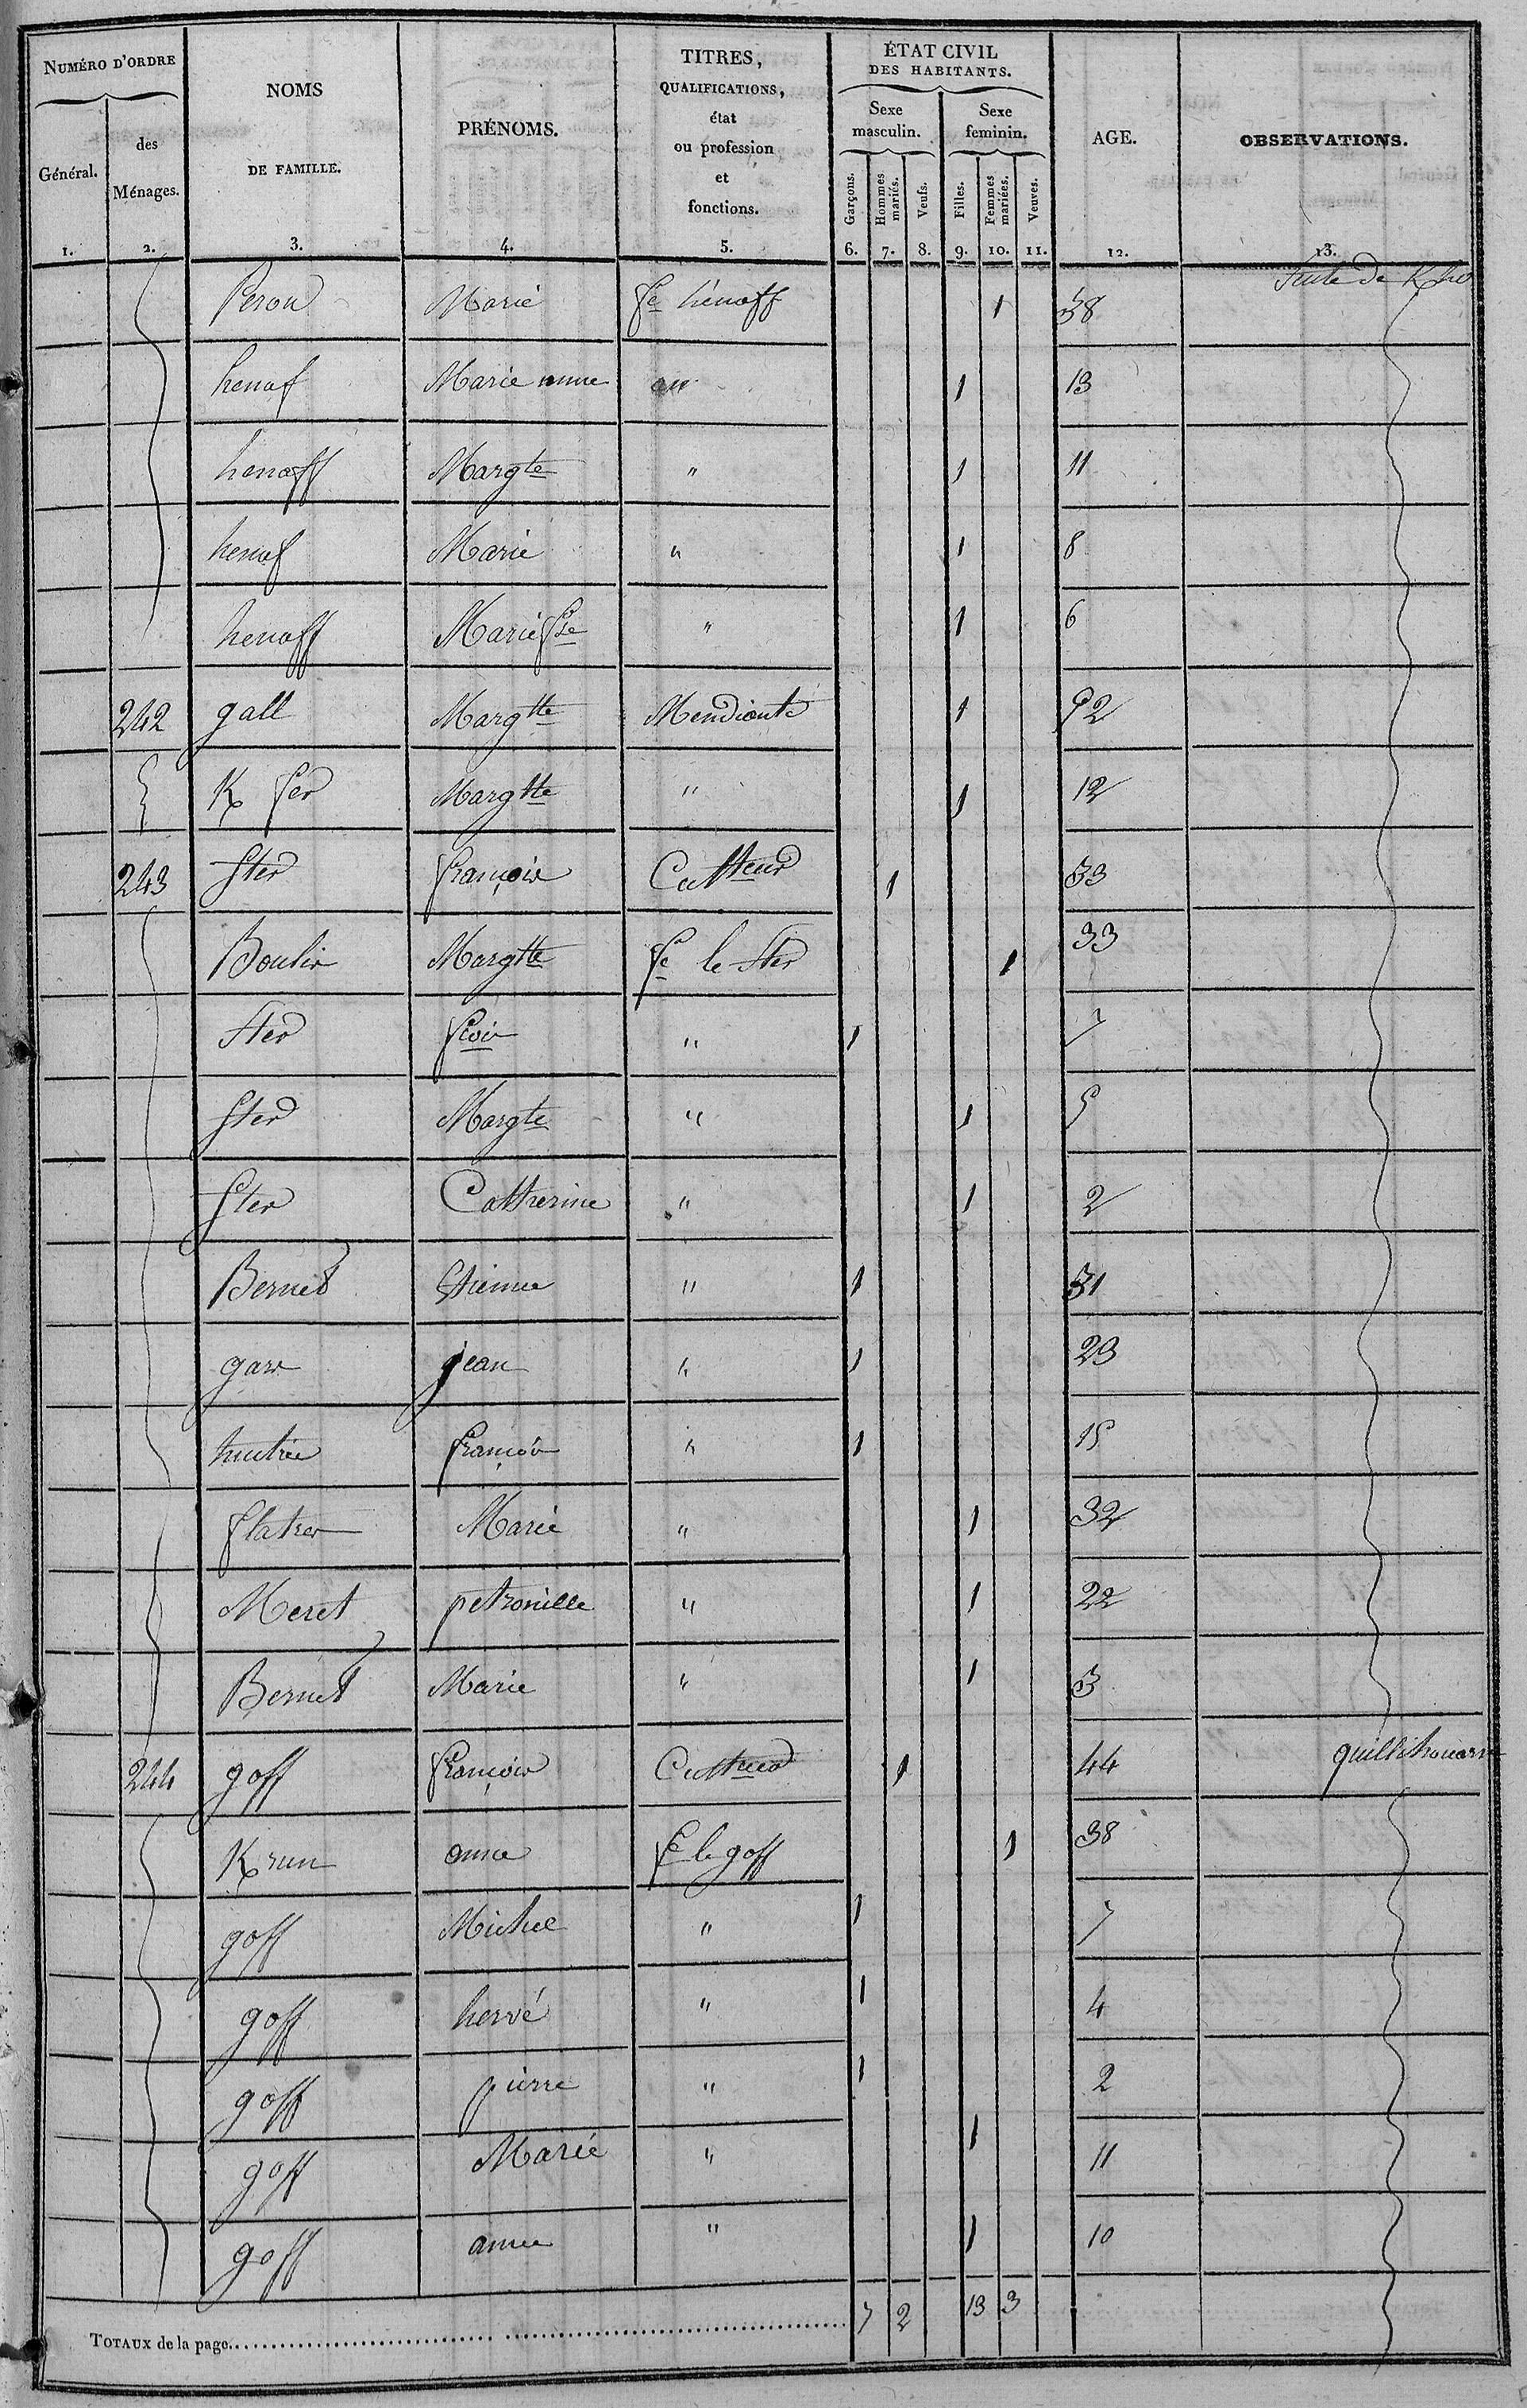 NUMÉRO D'ORDRE | NOMS DE FAMILLE. | PRÉNOMS. | TITRES, QUALIFICATIONS, état ou profession et fonctions. | ÉTAT CIVIL DES HABITANTS. | AGE. | OBSERVATIONS.
Général. | des Ménages. | Sexe masculin. | Sexe feminin.
Garçons. | Hommes mariés. | Veufs. | Filles. | Femmes mariées. | Veuves.
1. | 2. | 3. | 4. | 5. | 6. | 7. | 8. | 9. | 10. | 11. | 12. | 13.
Peron Marie fe hénaff 1 38
henaf Marie anne 1 13
henaff Margte " 1 11
henaf Marie " 1 8
henaff Marie fse " 1 6
242 gall Margtte Mendiante 1 52
K fer Margtte " 1 12
243 Ster françois Cultteur 1 33
Boulis Margtte fe le Ster 1 33
Ster fcois " 1 7
Ster Margte " 1 5
Ster Cattherine " 1 2
Bernet Etienne " 1 31
garr jean " 1 23
françois " 1 15
Marie " 1 32
Meret petronille " 1 22
Bernet Marie " 1 3
244 goff françois Cultteur 1 44 quillihouarn
K run anne fe le goff 1 38
goff Michel " 1 7
goff hervé " 1 4
goff pierre " 1 2
goff Marie " 1 11
goff anne " 1 10
TOTAUX de la page 7 2 13 3